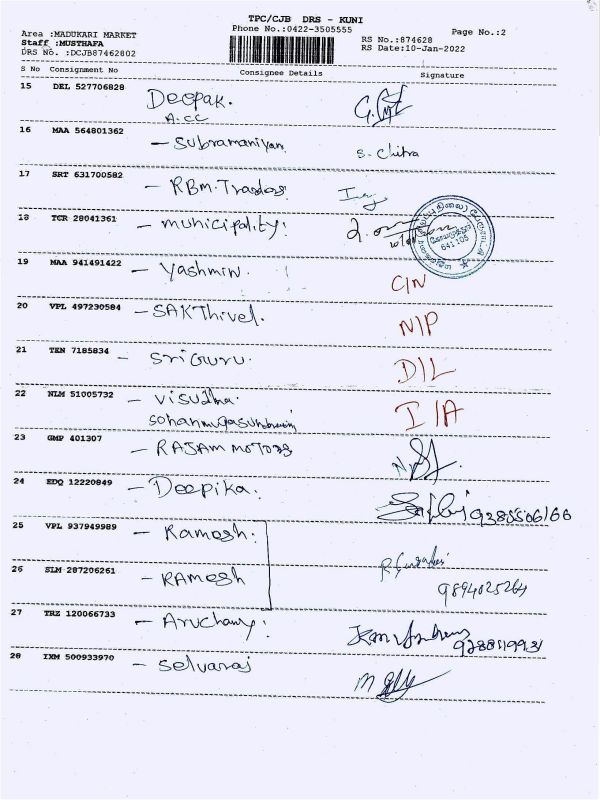 TPC/CJB DRS - KUNI
Phone No.:0422-3505555
Page No.:2
Area :MADUKARI MARKET
Staff :MUSTHAFA
DRS No. :DCJB87462802
RS No.:874628
RS Date:10-Jan-2022
S No Consignment No Consignee Details Signature
15 DEL 527706828 Deepak.
A.CC
16 MAA 564801362 - Subramaniyan S. Chitra
17 SRT 631700582 - RBM. Traders
18 TCR 28041361 - municipality:
641 105
19 MAA 941491422 - Yashmin. C/N
20 VPL 497230584 - SAKThivel. N/P
21 TEN 7185834 - Sri Guru. D/L
22 NLM 51005732 - Visudha. I/A
23 GMP 401307 - RAJAM MOTORS
24 EDQ 12220849 - Deepika.
25 VPL 937949989 - Ramesh.
26 SLM 287206261 - RAmesh
9894025264
27 TRZ 120066733
28 IXM 500933970 - Selvaraj